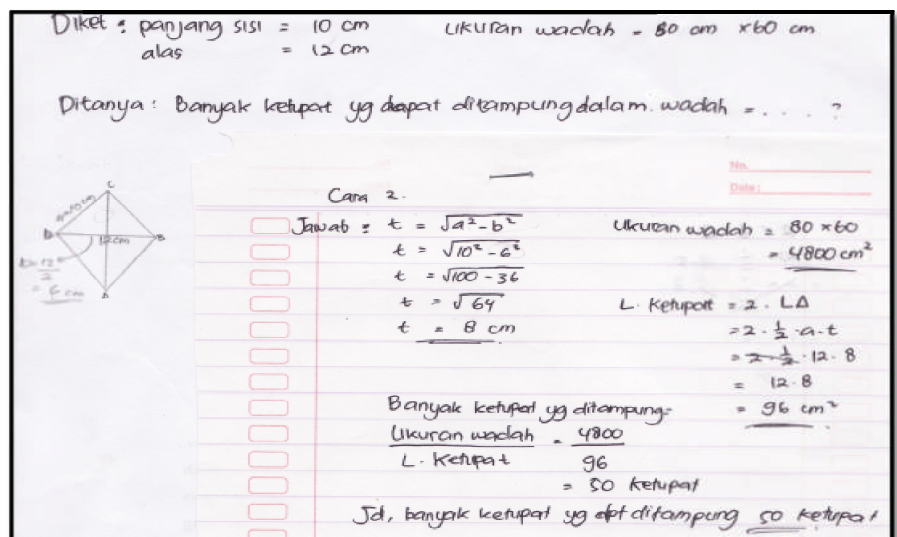 Diket : panjang sisi = 10 cm   Ukuran wadah = 80 cm x 60 cm
alas = 12 cm
Ditanya : Banyak ketupat yg dapat ditampung dalam wadah = . . . . ?
No.
Date :
Cara 2.
C
D
B
A
12 cm
b = 12/2
= 6 cm
Jawab : t = √a² - b²
t = √10² - 6²
t = √100 - 36
t = √64
t = 8 cm
Ukuran wadah = 80 x 60
= 4800 cm²
L. Ketupat = 2 . L∆
= 2 . 1/2 . a . t
= 2 . 1/2 . 12 . 8
= 12 . 8
= 96 cm²
Banyak ketupat yg ditampung =
Ukuran wadah = 4800
L. Ketupat   96
= 50 ketupat
Jd, banyak ketupat yg dpt ditampung 50 ketupat